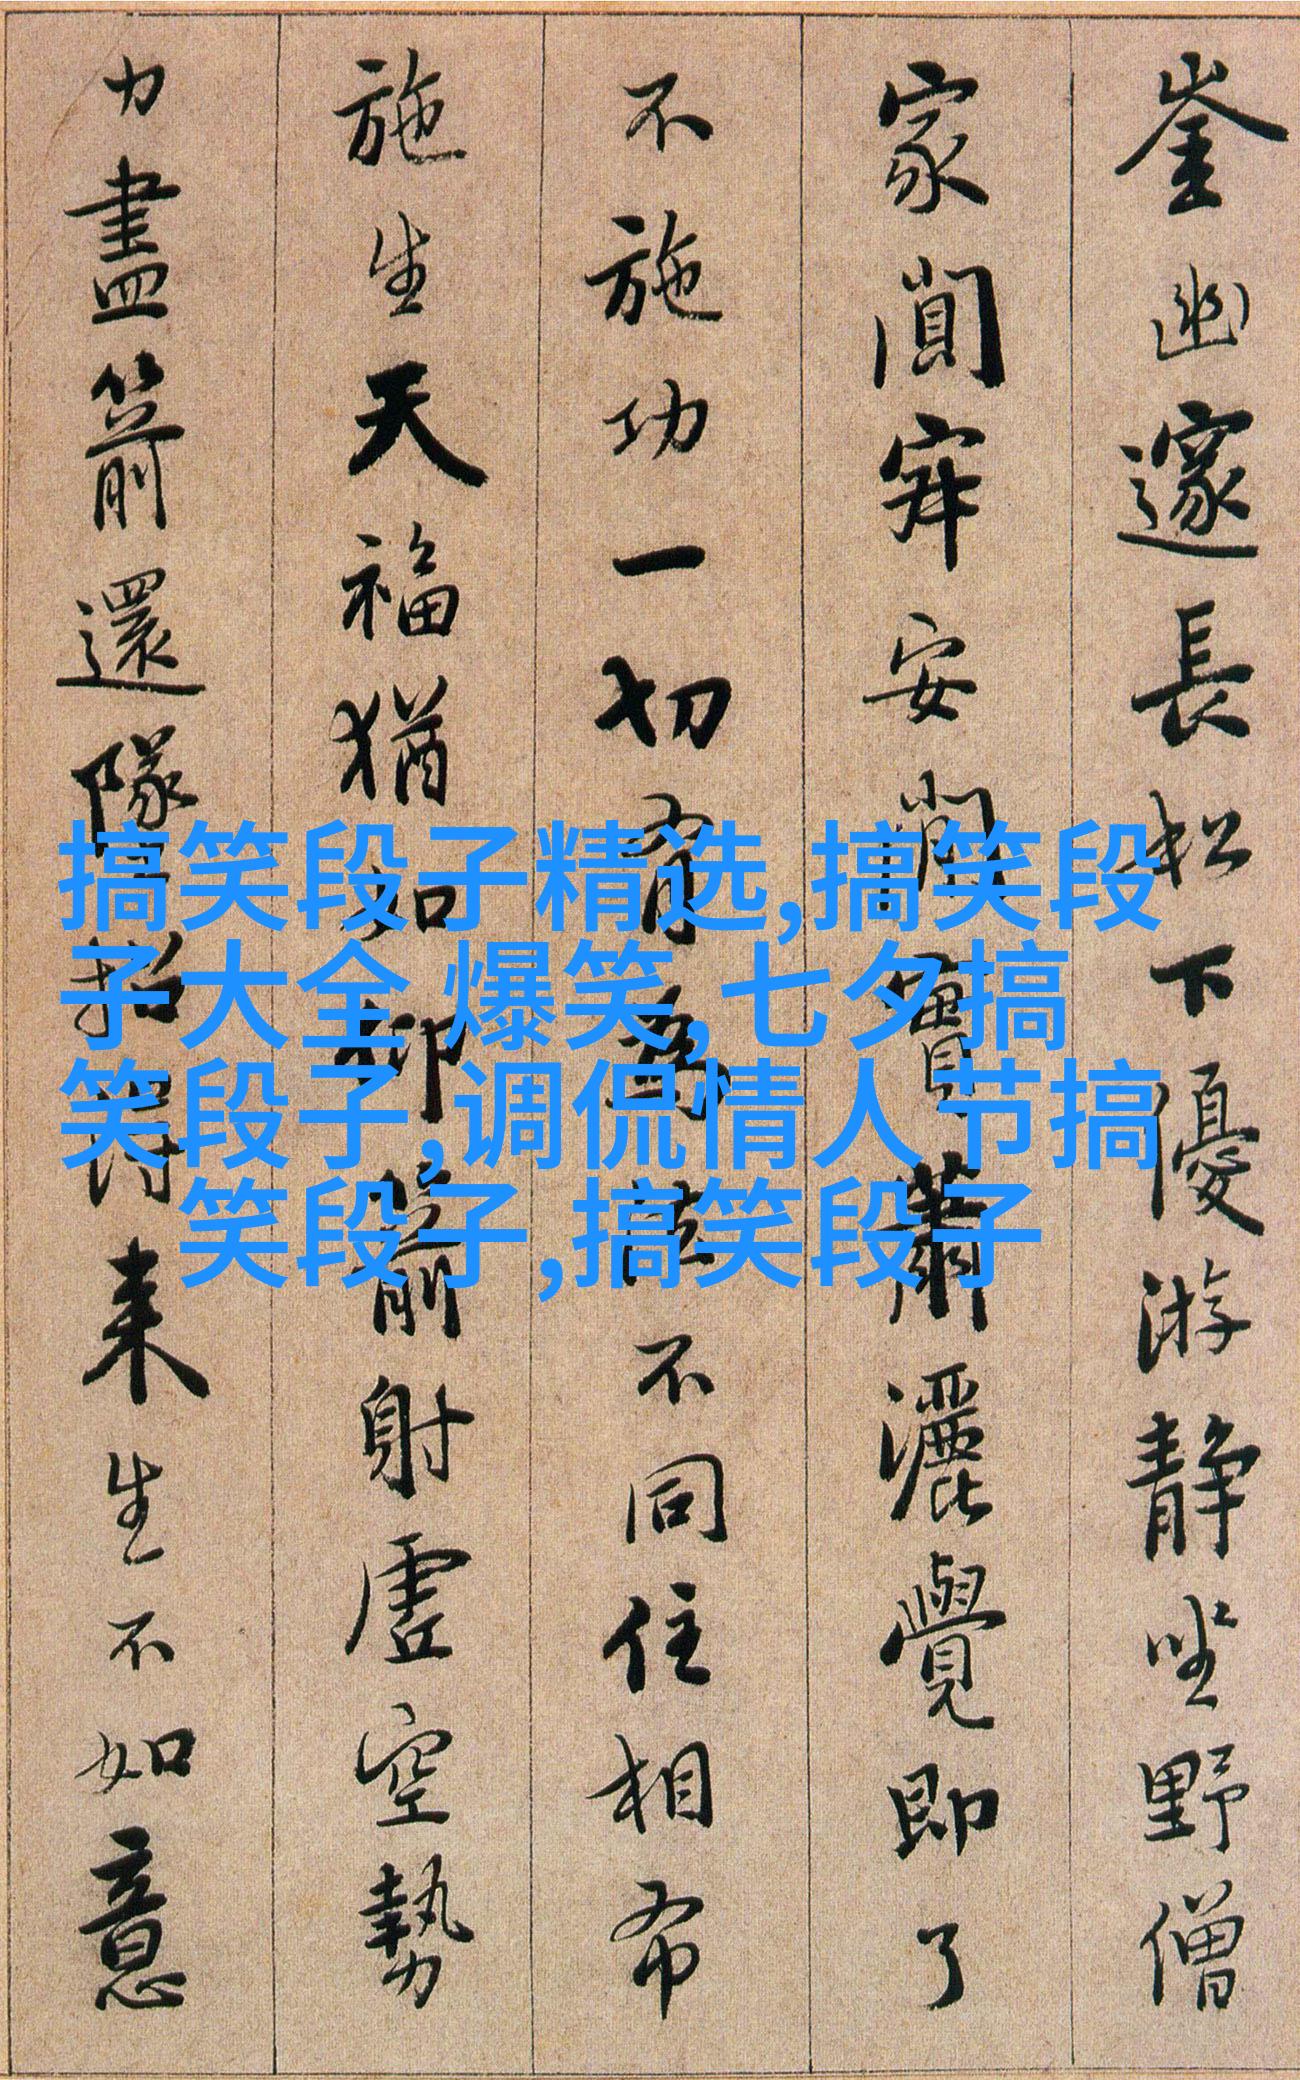 崟幽邃長松下優游静坐野僧
家闃寂安閑實蕭灑覺即了
不施功一切有為法不同住相布
施生天福猶如仰箭射虛空勢
力盡箭還墜招得来生不如意
搞笑段子精选,搞笑段
子大全 爆笑, 七夕搞
笑段子,调侃情人节搞
笑段子,搞笑段子